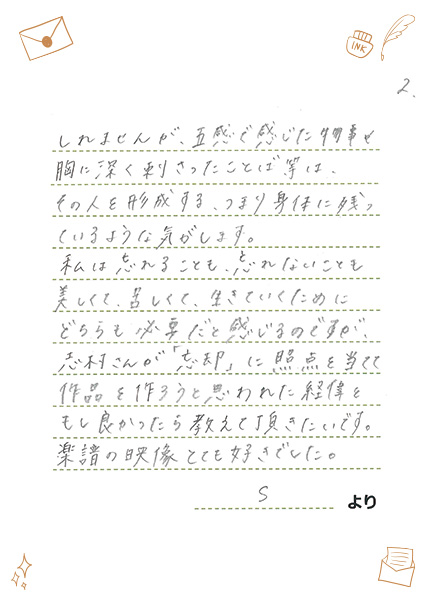 INK
2.
しれませんが、五感で感じた物事や
胸に深く刺さったことば等は、
その人を形成する、つまり身体に残っ
ているような気がします。
私は忘れることも、忘れないことも
美しくて、苦しくて、生きていくために
どちらも必要だと感じるのですが、
志村さんが「忘却」に照点を当てて
作品を作ろうと思われた経偉を
もし良かったら教えて頂きたいです。
楽譜の映像とても好きでした。
S より